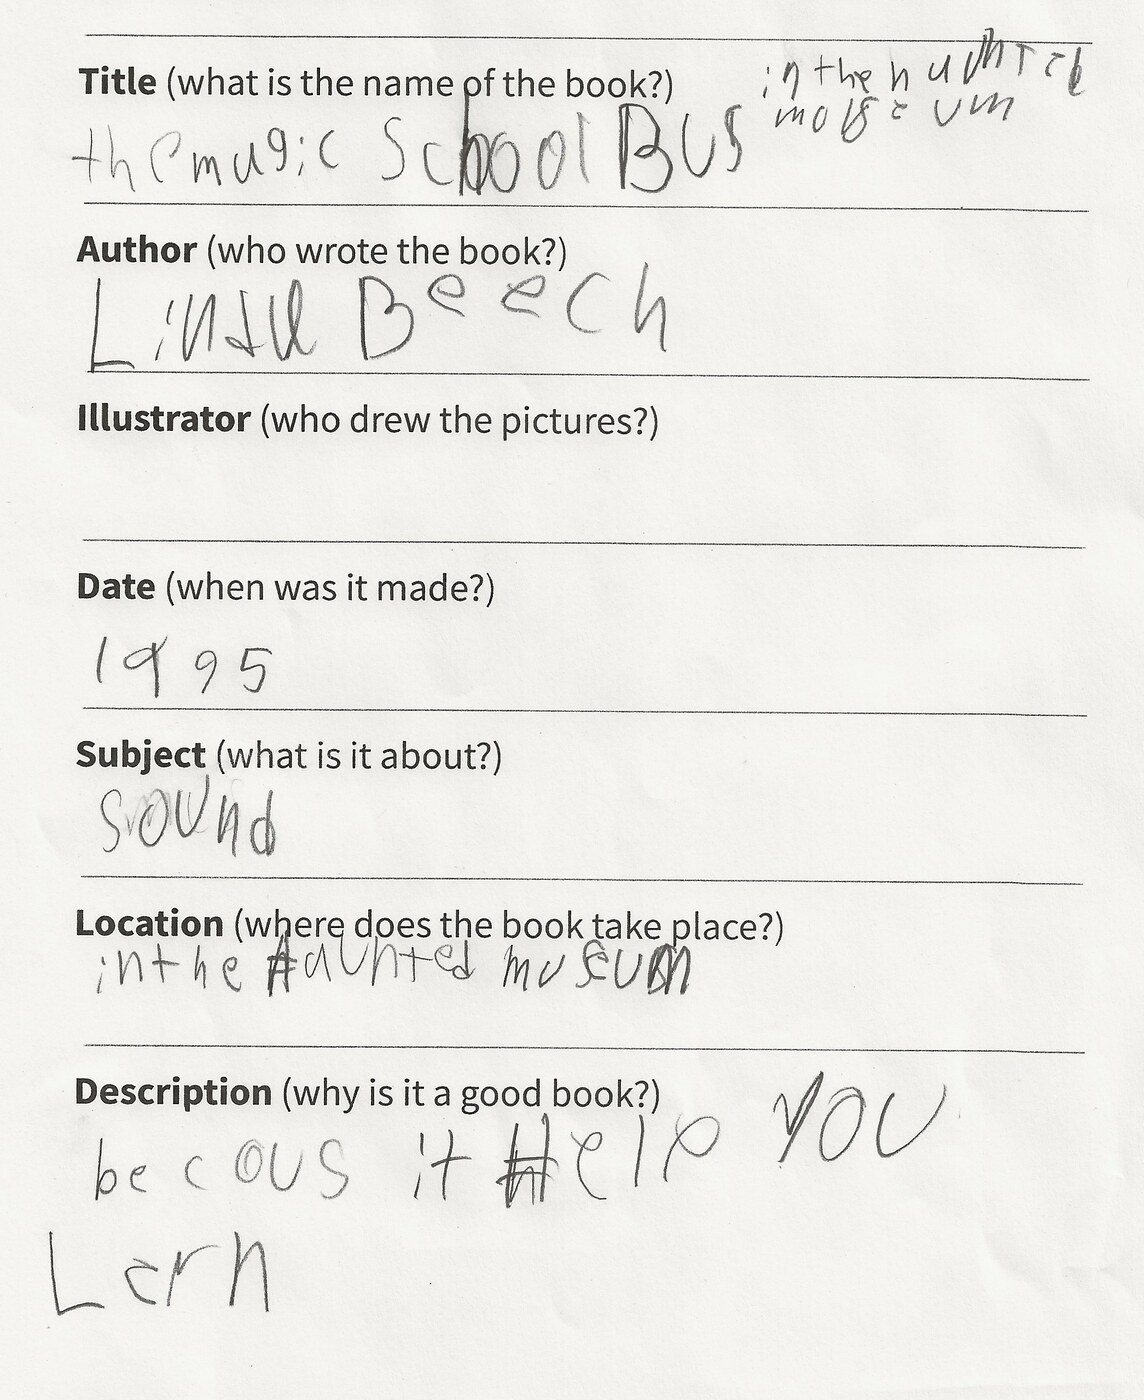 Title (what is the name of the book?)
the magic School BUS in the hunted
moseum
Author (who wrote the book?)
Linda Beech
Illustrator (who drew the pictures?)
Date (when was it made?)
1995
Subject (what is it about?)
sound
Location (where does the book take place?)
in the Haunted museum
Description (why is it a good book?)
be cous it Help YOU
Lern